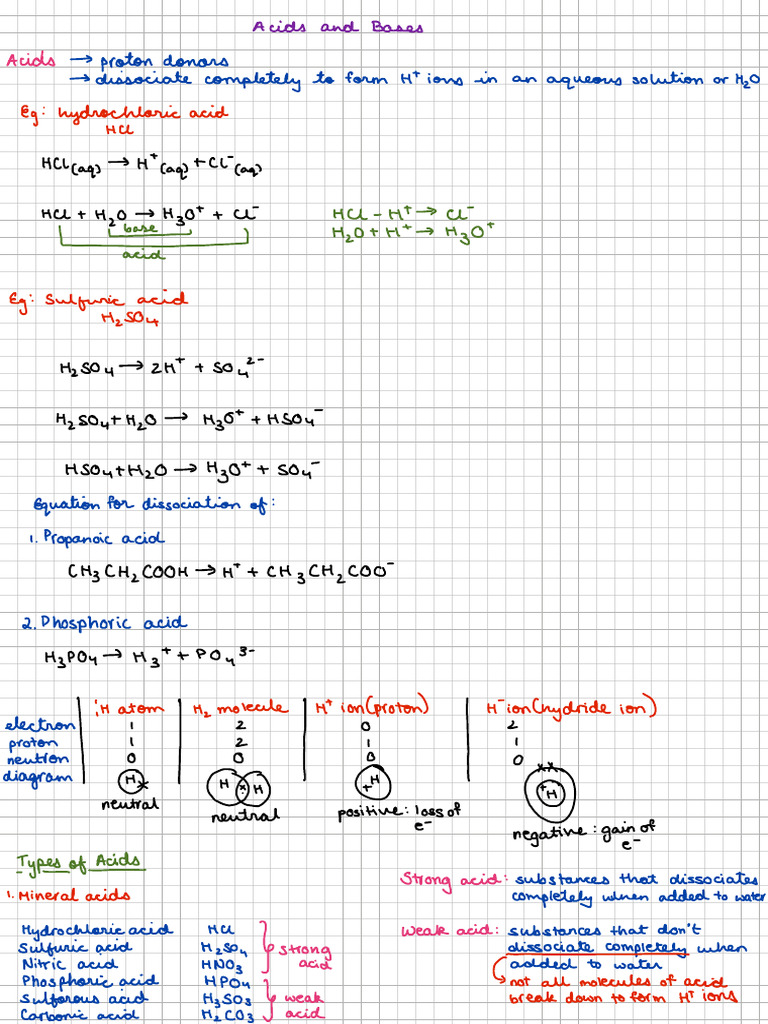 Acids and Bases
Acids → proton donors
→ dissociate completely to form H⁺ ions in an aqueous solution or H₂O
Eg: hydrochloric acid
HCl
HCl(aq) → H⁺(aq) + Cl⁻(aq)
HCl + H₂O → H₃O⁺ + Cl⁻
base
acid
HCl - H⁺ → Cl⁻
H₂O + H⁺ → H₃O⁺
Eg: Sulfuric acid
H₂SO₄
H₂SO₄ → 2H⁺ + SO₄²⁻
H₂SO₄ + H₂O → H₃O⁺ + HSO₄⁻
HSO₄ + H₂O → H₃O⁺ + SO₄⁻
Equation for dissociation of:
1. Propanoic acid
CH₃CH₂COOH → H⁺ + CH₃CH₂COO⁻
2. Phosphoric acid
H₃PO₄ → H₃⁺ + PO₄³⁻
H atom H₂ molecule H⁺ ion (proton) H⁻ ion (hydride ion)
electron 1 2 0 2
proton 1 2 1 1
neutron 0 0 0 0
diagram H x H x H + H x x + H
neutral neutral positive: loss of e⁻ negative: gain of e⁻
Types of Acids
1. Mineral acids
Hydrochloric acid HCl
Sulfuric acid H₂SO₄
Nitric acid HNO₃
strong acid
Phosphoric acid HPO₄
Sulforous acid H₃SO₃
Carbonic acid H₂CO₃
weak acid
Strong acid: substances that dissociates
completely when added to water
Weak acid: substances that don't
dissociate completely when
added to water
not all molecules of acid
break down to form H⁺ ions